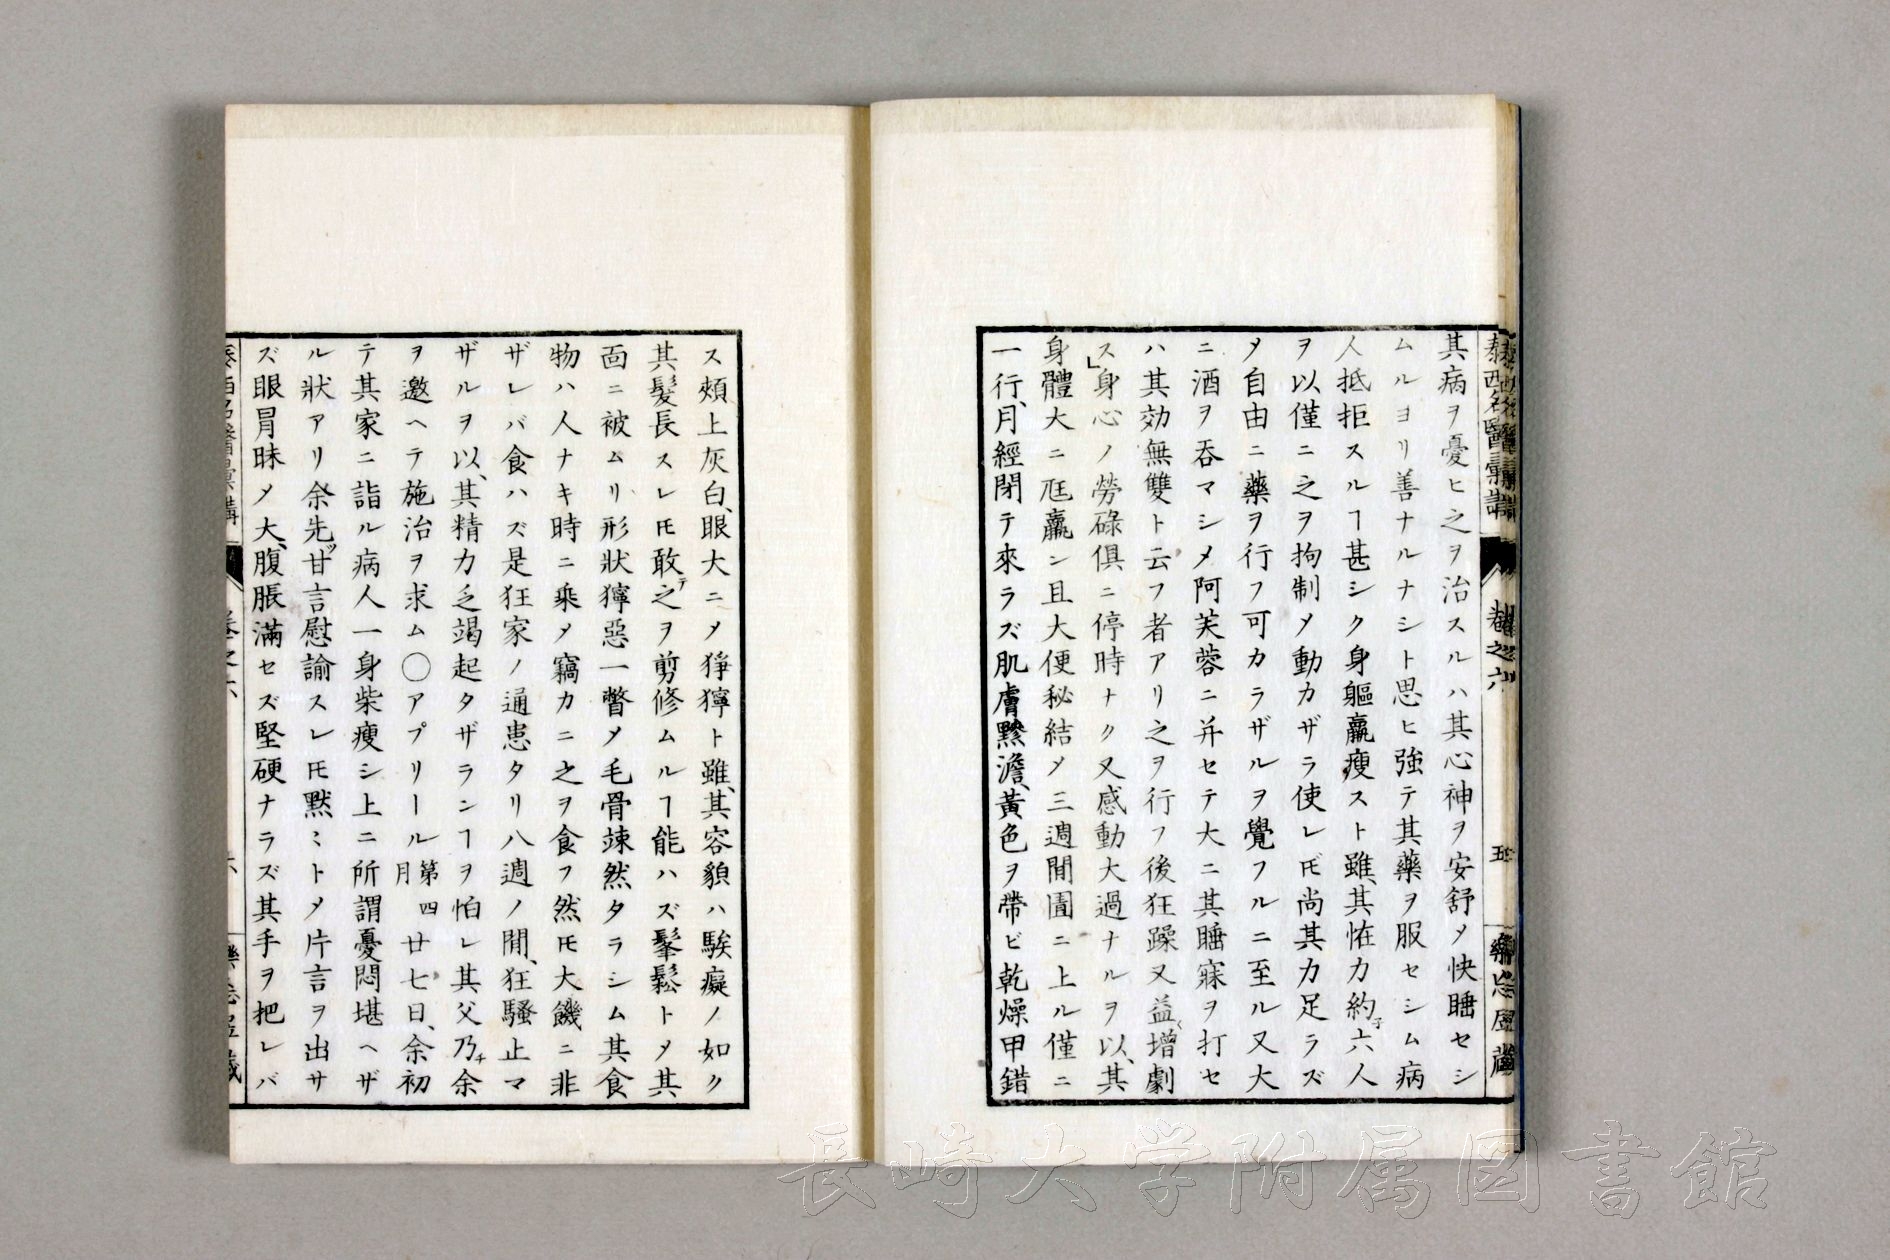 其病ヲ憂ヒ之ヲ治スルハ其心神ヲ安舒メ快睡セシ
ムルヨリ善ナルナシト思ヒ強テ其藥ヲ服セシム病
人抵拒スルヿ甚シク身軀羸瘦スト雖、其恠力約六人
ヲ以僅ニ之ヲ拘制メ動カザラ使レㇳ゙モ尚其力足ラズ
メ自由ニ藥ヲ行フ可カラザルヲ覺フルニ至ル又大
ニ酒ヲ吞マシメ阿芙蓉ニ并セテ大ニ其睡寐ヲ打セ
ハ其効無雙ト云フ者アリ之ヲ行フ後狂躁又益增劇
ス」身心ノ勞碌俱ニ停時ナク又感動大過ナルヲ以、其
身體大ニ尫羸シ且大便秘結メ三週間圊ニ上ル僅ニ
一行、月經閉テ來ラズ肌膚黲澹、黃色ヲ帶ビ乾燥甲錯
泰西名醫彙講
卷之六
五
ス頰上灰白、眼大ニメ猙獰ト雖、其容貌ハ騃癡ノ如ク
其髮長スレㇳモ敢テ之ヲ剪修ムルヿ能ハズ髼鬆トメ其
面ニ被ムリ形狀獰惡一瞥メ毛骨竦然タラシム其食
物ハ人ナキ時ニ乘メ竊カニ之ヲ食フ然ㇳモ大饑ニ非
ザレバ食ハズ是狂家ノ通患タリ八週ノ間、狂騷止マ
ザルヲ以、其精力乏竭起タザランヿヲ怕レ其父乃チ余
ヲ邀ヘテ施治ヲ求ム〇アプリール第四月廿七日、余初
テ其家ニ詣ル病人一身柴瘦シ上ニ所謂憂悶堪ヘザ
ル狀アリ余先ヅ甘言慰諭スレㇳモ默ミトメ片言ヲ出サ
ズ眼冐昧メ大、腹脹滿セズ堅硬ナラズ其手ヲ把レバ
長崎大学附属図書館